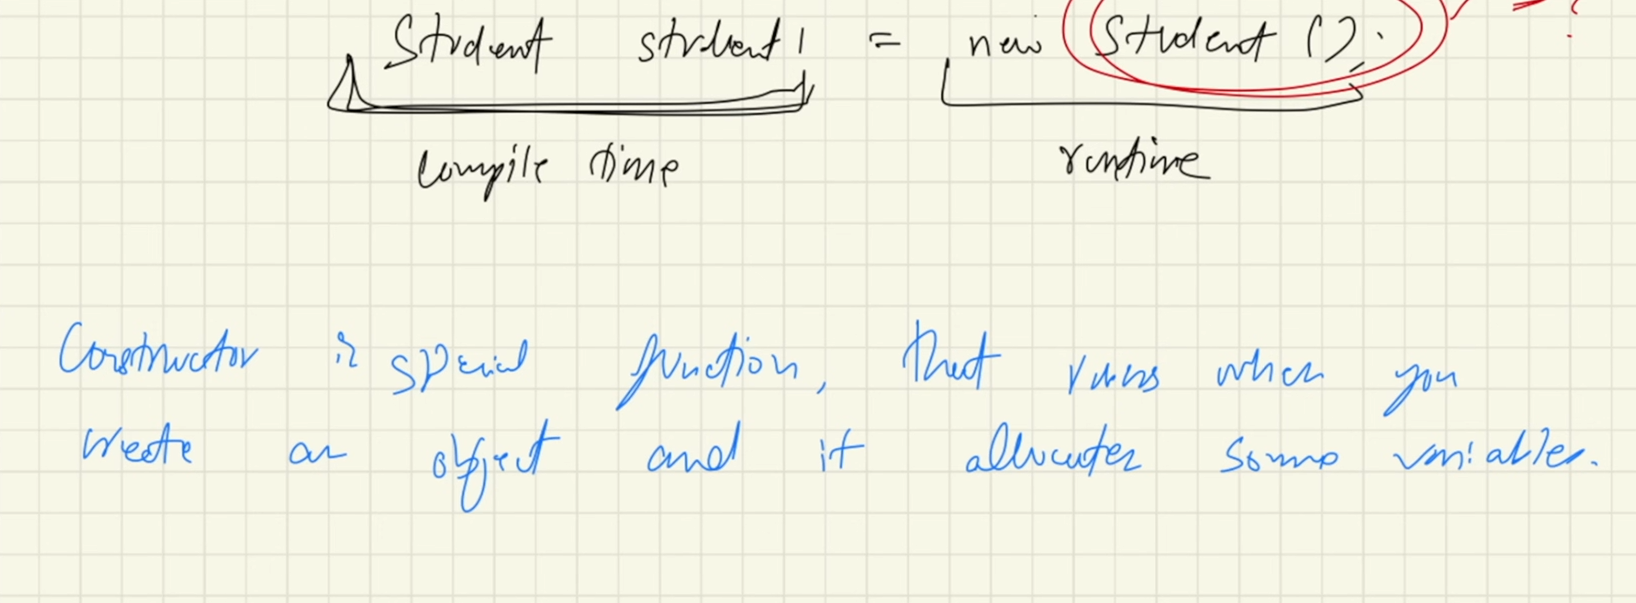 Student student1 = new Student(); = ?
compile time runtime
Constructor is special function, that runs when you
create an object and it allocates some variables.